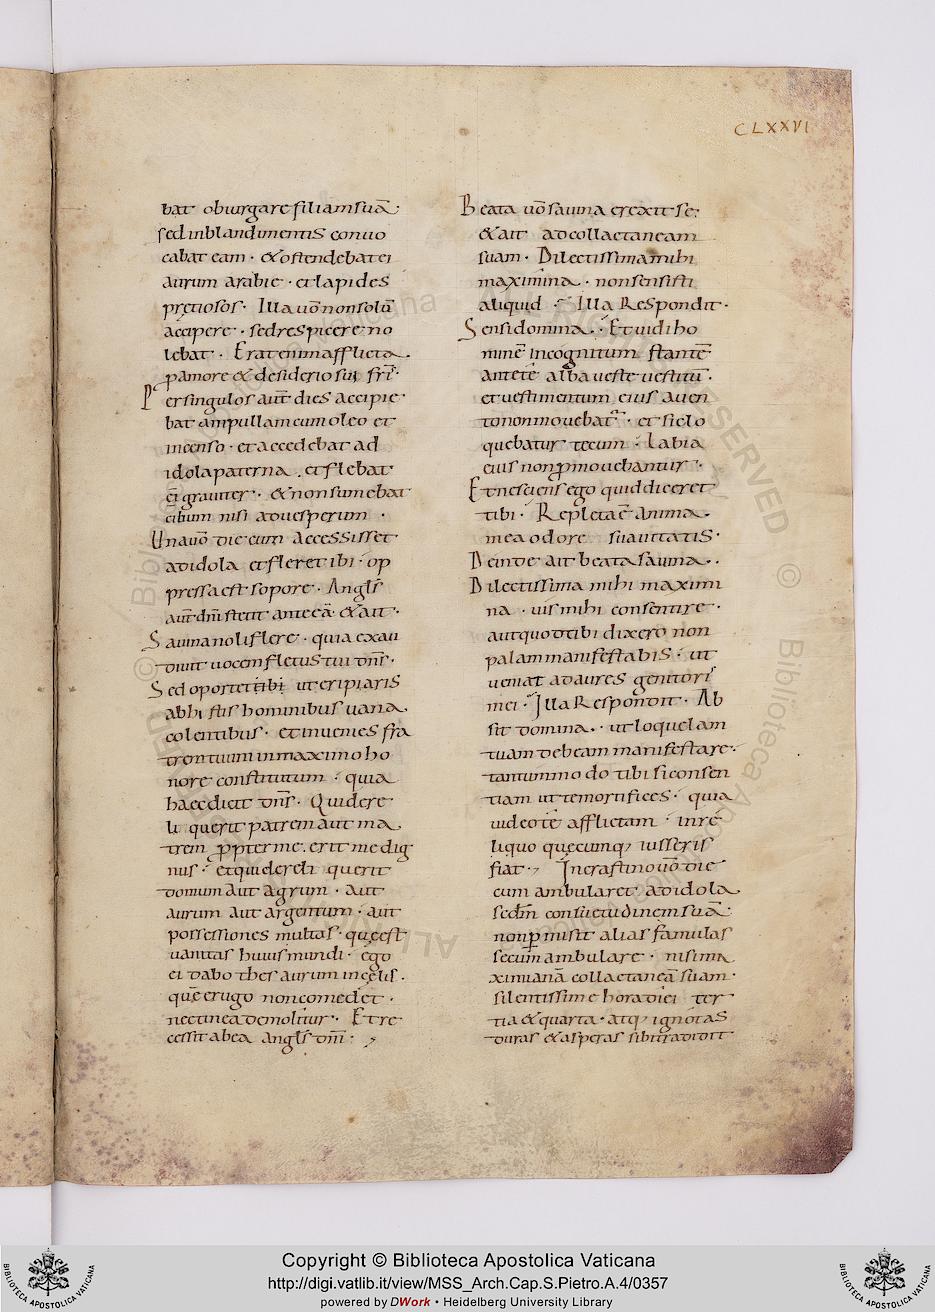 CLXXVI
bat obiurgare filiam suā·
sed in blandimentis conuo
cabat eam · & ostendebat ei
aurum arabie · et lapides
pretiosos · Illa uō non solū
accipere · sed respicere no
lebat · Erat enim afflicta ·
p amore & desiderio sui fr̄i·
Per singulos aūt dies accipie·
bat ampullam cum oleo et
incenso · et accedebat ad
idola paterna · et flebat
ei grauiter · & non sumebat
cibum nisi ad uesperum ·
Una uō die cum accessisset
ad idola et fleret ibi · op
pressa est sopore · Angls̄
aūt dn̄i stetit ante eā & ait ·
Sauina noli flere · quia exau
diuit uocem fletus tui dn̄s ·
Sed oportet tibi ut eripiaris
ab hi stis hominibus uana
colentibus · et inuenies fra
trem tuum in maximo ho
nore constitutum · quia
haec dicit dn̄s · Qui dere
li querit patrem aut ma
trem propter me · erit me dig
nus · et qui dereli querit
domum aut agrum · aut
aurum aut argentum · aut
possessiones multas · que est
uanitas huius mundi · ego
ei dabo thesaurum in celis ·
quē erugo non comedet ·
nec tinea demolitur · Et re
cessit ab ea angls̄ dn̄i ·
Beata uō sauina erexit se·
& ait ad collactaneam
suam · Dilectissima mihi
maximina · non sensisti
aliquid · Illa Respondit ·
Sensi domina · Et uidi ho
minē incognitum stantē
ante te alba ueste uestitū ·
et uestimentum eius a uen
to non mouebatur · et si lo
quebatur tecum · labia
eius non pmouebantur ·
Et nesciens ego quid diceret
tibi · Repleta ē anima
mea odore suauitatis ·
Deinde ait beata sauina ·
Dilectissima mihi maximi
na · uis mihi consentire ·
aut quod tibi dixero non
palam manifestabis · ut
ueniat ad aures genitoris
mei · Illa Respondit · Ab
sit domina · ut loquelam
tuam debeam manifestare ·
tantummodo tibi si consen
tiam ut te mortifices · quia
uideo te afflictam · in re
liquo quecumq; iusseris
fiat · In crastino uō die
cum ambularet ad idola
sedm̄ consuetudinem suā ·
non pmisit alias famulas
secum ambulare · nisi ma
ximianā collactaneā suam ·
silentissime hora diei ter
tia & quarta · atq; ignotas
duras & asperas sibi tradidit
Copyright © Biblioteca Apostolica Vaticana
http://digi.vatlib.it/view/MSS_Arch.Cap.S.Pietro.A.4/0357
powered by DWork • Heidelberg University Library